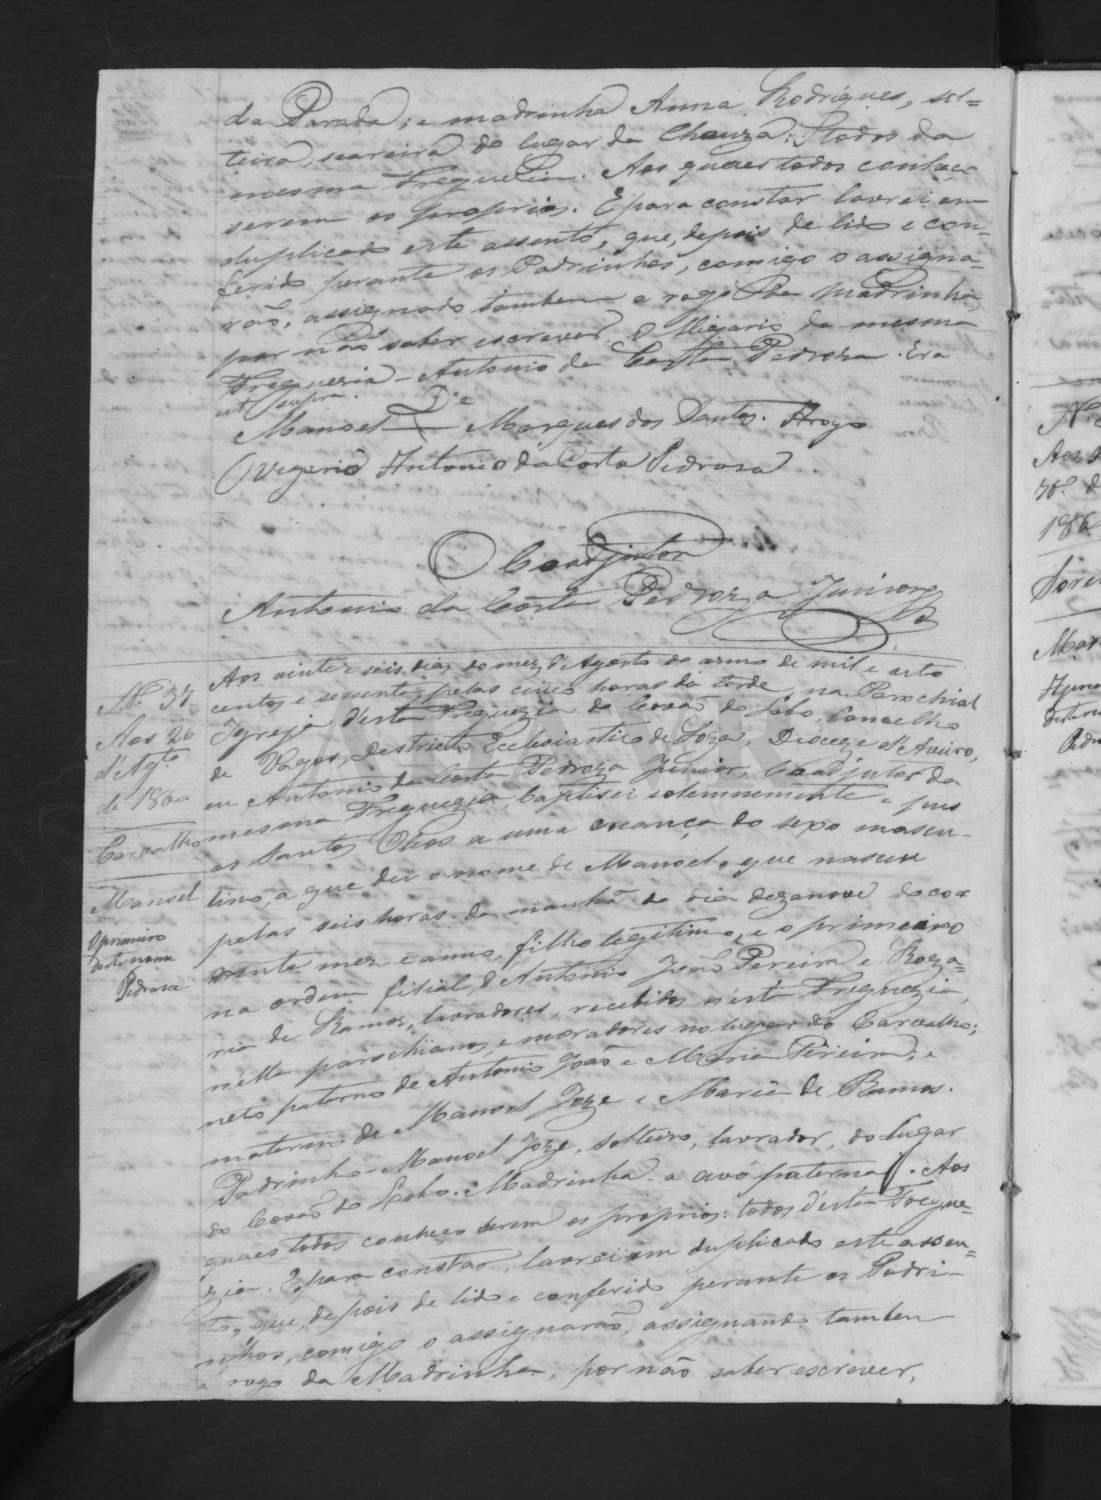 da Parada; e madrinha Anna Rodrigues, sol=
teira, seareira do lugar da Chouza. todos da
mesma Freguezia. Aos quaes todos conheço
serem os proprios. E para constar lavrei em
duplicado este assento, que, depois de lido e con-
ferido perante os Padrinhos, comigo o assigna-
rão, assignado tambem a rogo da Madrinha,
por não saber escrever, o Vigario da mesma
Freguezia - Antonio da Costa Pedroza. Era
ut supra.
Manoel Marques dos Santos. Arogo
O Vigario Antonio da Costa Pedrosa
O Coadjutor
Antonio da Costa Pedroza Junior
Nº 37
Aos 26
d'Agto
de 1860
Carvalho
Manoel
O primeiro
deste nome
Pedrosa
Aos vinte e seis dias do mez d'Agosto do anno de mil e oito
centos e sessenta, pelas cinco horas da tarde, na Parochial
Igreja d'esta Freguezia do Covão do Lobo, Concelho
de Vagos, Destricto Ecclesiastico de Soza, Dioceze d'Aveiro,
eu Antonio da Costa Pedroza Junior, Coadjutor da
mesma Freguezia, baptisei solemnemente e puz
os Santos Oleos a uma creança do sexo mascu-
lino, a que dei o nome de Manoel, que nasceu
pelas seis horas da manhã do dia dezanove do cor
rente mez e anno, filho legitimo, e o primeiro
na ordem filial, d'Antonio João Pereira e Roza-
ria de Ramos, lavradores, recebidos n'esta Freguezia,
nella parochianos, e moradores no lugar do Carvalho;
neto paterno de Antonio João e Maria Pereira, e
materno de Manoel Joze e Maria de Ramos.
Padrinho - Manoel Joze, solteiro, lavrador, do lugar
do Covão do Lobo. Madrinha - a avó paterna. Aos
quaes todos conheço serem os proprios: todos d'esta Fregue=
zia. E para constar, lavrei em duplicado este assen=
to, que, depois de lido e conferido perante os Padri-
nhos, comigo o assignarão, assignando tambem
a rogo da Madrinha, por não saber escrever,